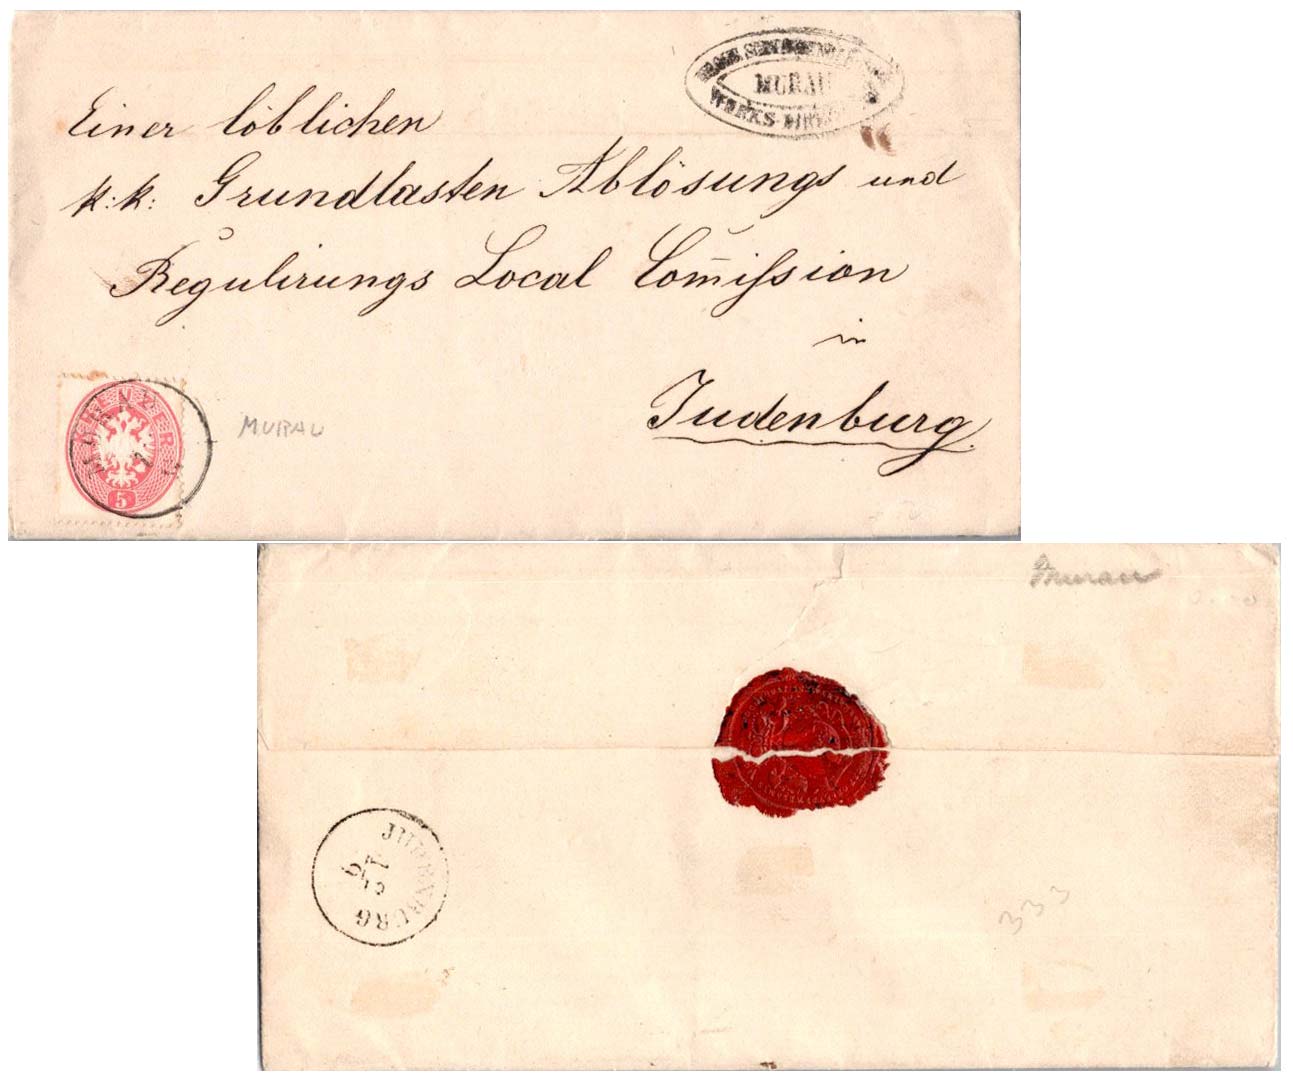 MURAU
WERKS-DIREC
Einer löblichen
k: k: Grundlasten Ablösungs und
Regulirungs Local Com̅ißsion
in
Judenburg
KREUZER
5
MURAU
MURAU
Murau
JUDENBURG
333